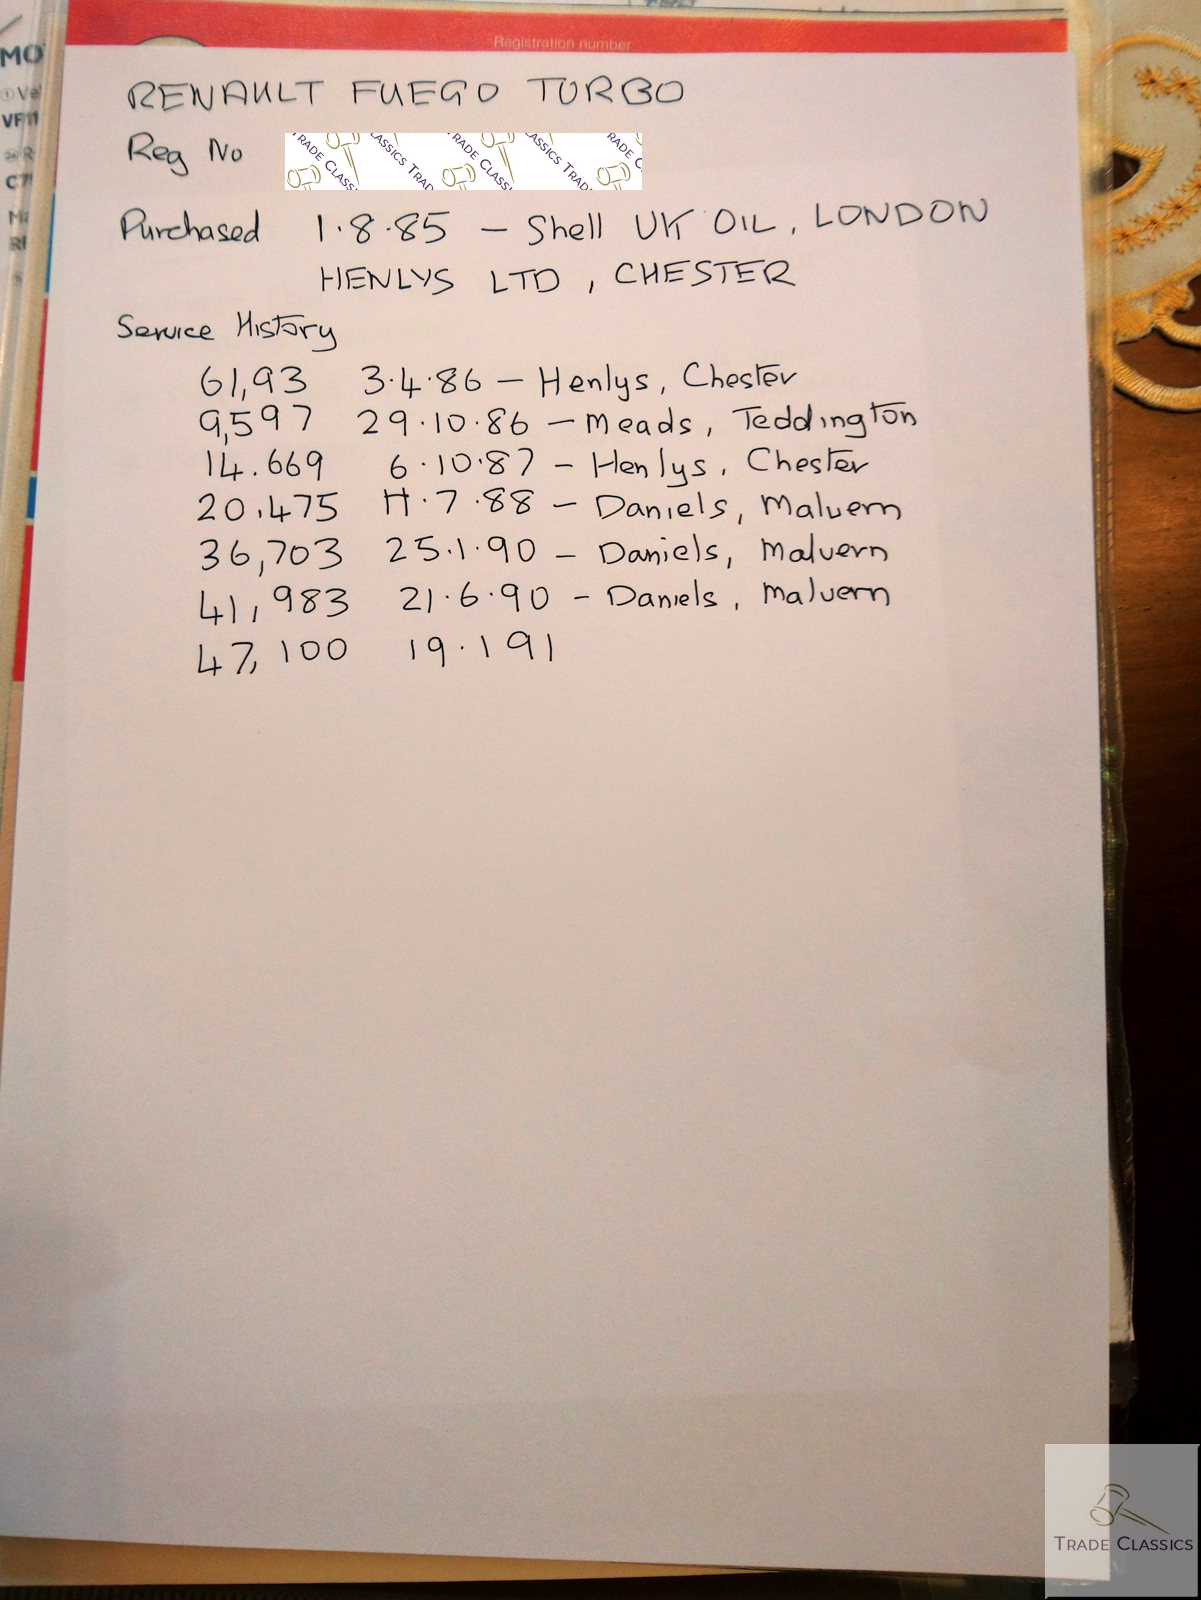 Registration number
MO
VF11
C7
RENAULT FUEGO TURBO
Reg No
TRADE CLASSICS TRADE CLASSICS TRADE C
Purchased 1.8.85 – Shell UK OIL, LONDON
HENLYS LTD, CHESTER
Service History
61,93 3.4.86 – Henlys, Chester
9,597 29.10.86 – Meads, Teddington
14.669 6.10.87 – Henlys, Chester
20.475 11.7.88 – Daniels, Malvern
36,703 25.1.90 – Daniels, Malvern
41,983 21.6.90 – Daniels, Malvern
47,100 19.1 91
TRADE CLASSICS